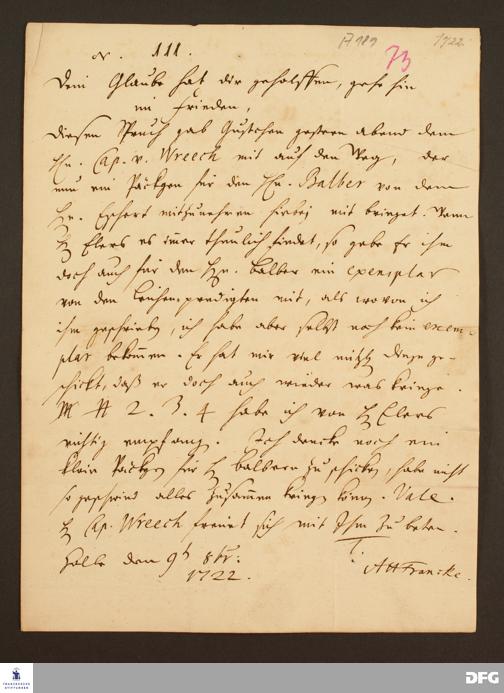 N. 111.
A 189
73
1722.
Dein Glaube hat dir geholffen, gehe hin
im Frieden,
diesen Spruch gab Gustchen gestern abend dem
Hn. Cap. v. Wreech mit auf den Weg, der
nun ein Päckgen für den Hn. Balber von dem
Hn. mitzunehmen hiebej mit bringet. Wenn
H Elers es immer thunlich findet, so gebe Er ihm
doch auch für den Hn. Balber ein exemplar
von den Leichenpredigten mit, als wovon ich
ihm geschrieben, ich habe aber selbst noch kein exem-
plar bekommen. Er hat mir viel dinge ge-
schickt, daß er doch auch wieder was kriege.
2. 3. 4 habe ich von H Elers
richtig empfangen. Ich dencke noch ein
klein Päckgen für H Balbern zu schicken, habe nicht
so geschwind alles zusammen kriegen können. Vale.
H Cap. Wreech freuet sich mit Ihm zu beten.
Halle den 9t 8br.
1722.
AHFrancke.
FRANCKESCHE
STIFTUNGEN
DFG